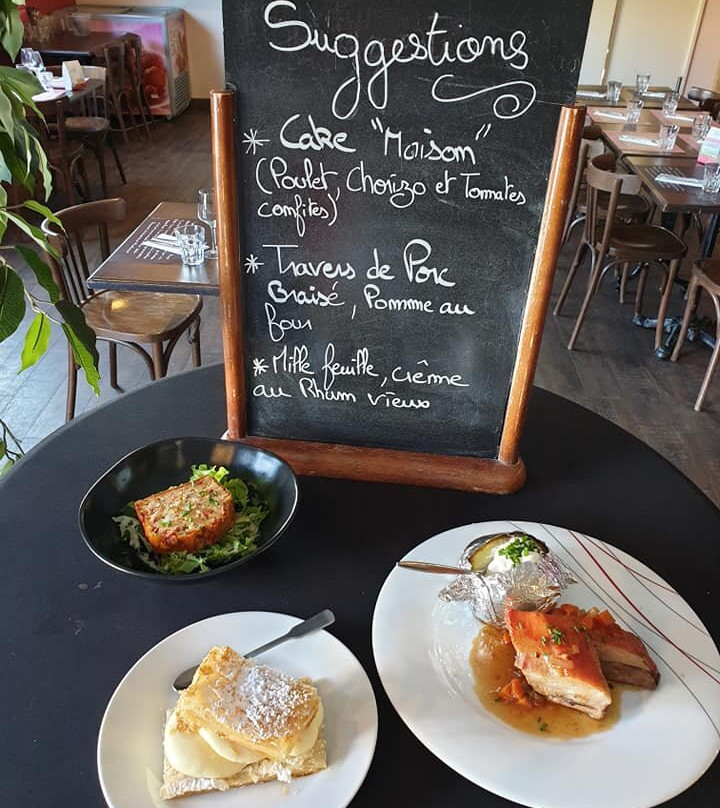 Suggestions
* Cake "Maison"
(Poulet, Chorizo et Tomates
confites)
* Travers de Porc
Braisé, Pommme au
four
* Mille feuille, crème
au Rhum vieux